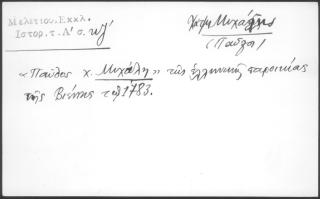 Μελετίου.Εκκλ.
Ιστορ.τ.Α' σ. κζ'
Χατζη Μιχάλης
(Παῦλος)
«Παῦλος χ. Μιχάλη» τῆς ἑλληνικῆς παροικίας
τῆς Βιέννης τῷ 1783.